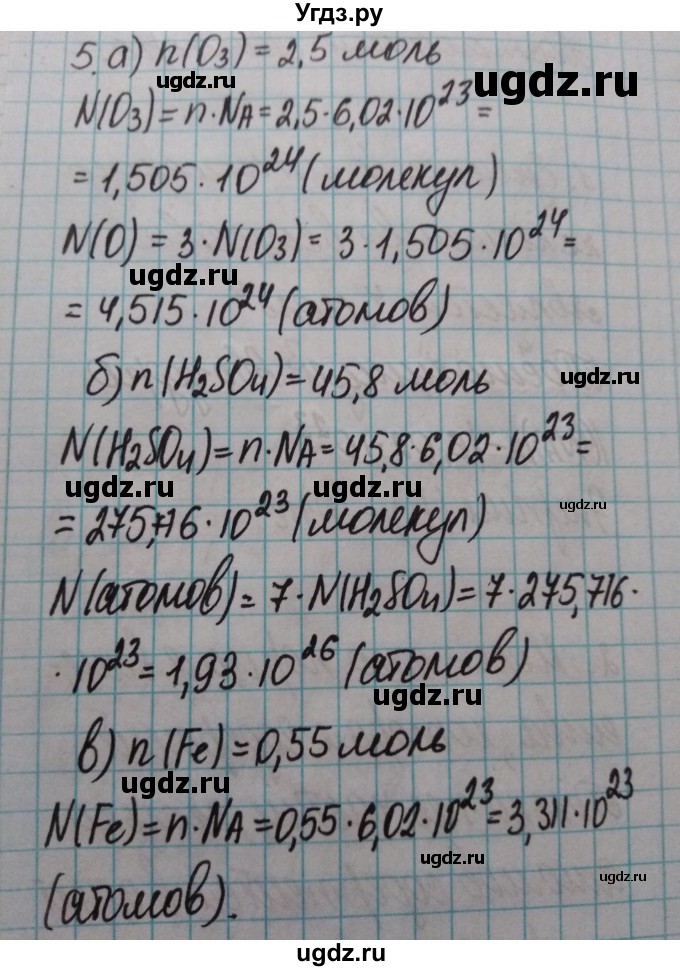 Угдз.ру
5.а) n(O₃) = 2,5 моль
ugdz.ru
ugdz.ru
N(O₃)=n·NA=2,5·6,02·10²³=
= 1,505·10²⁴ (молекул)
N(O) = 3·N(O₃)= 3·1,505·10²⁴=
ugdz.ru
= 4,515·10²⁴ (атомов)
б) n(H₂SO₄)=45,8 моль
ugdz.ru
N(H₂SO₄)=n·NA=45,8·6,02·10²³=
ugdz.ru
ugdz.ru
ugdz.ru
= 275,716·10²³ (молекул)
N(атомов)= 7·N(H₂SO₄)=7·275,716·
·10²³=1,93·10²⁶ (атомов)
ugdz.ru
в) n(Fe)=0,55 моль
ugdz.ru
N(Fe)=n·NA=0,55·6,02·10²³=3,311·10²³
ugdz.ru
ugdz.ru
(атомов).
ugdz.ru